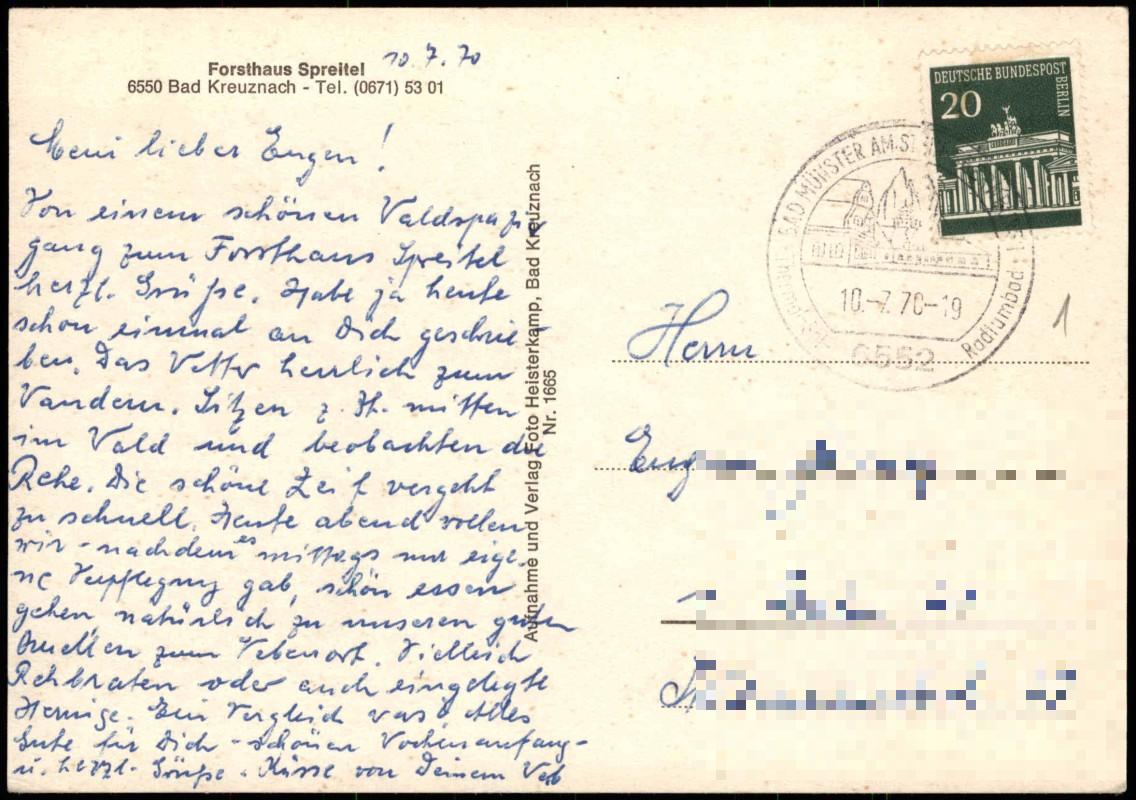 Forsthaus Spreitel
6550 Bad Kreuznach - Tel. (0671) 53 01
10.7.70
Mein lieber Eugen!
Von einem schönen Waldspazier
gang zum Forsthaus Spreitel
herzl. Grüße. Habe ja heute
schon einmal an Dich geschrie
ben. Das Wetter herrlich zum
Wandern. Sitzen z. Zt. mitten
im Wald und beobachten die
Rehe. Die schöne Zeit vergeht
zu schnell. Heute abend wollen
wir - nachdem es mittags nur eige-
ne Verpflegung gab, schön essen
gehen, natürlich zu unseren guten
zum Nebenort. Vielleich
Rehbraten oder auch eingelegte
Heringe. Ein Vergleich was? Alles
Gute für Dich - schönen Wochenanfang -
u. herzl. Grüße - Küsse von Deinem Web
Aufnahme und Verlag Foto Heisterkamp, Bad Kreuznach
Nr. 1665
DEUTSCHE BUNDESPOST
BERLIN
20
BAD MÜNSTER AM ST
10.-7.70-19
6552
Radiumbad
1
Herrn
Eug